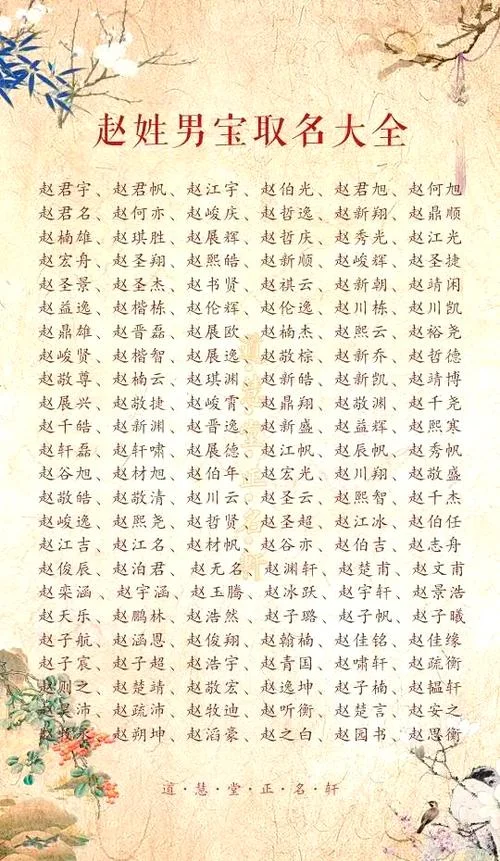 赵姓男宝取名大全
赵君宇、赵君帆、赵江宇、赵伯光、赵君旭、赵何旭
赵君名、赵何亦、赵峻庆、赵哲逸、赵新翔、赵鼎顺
赵楠雄、赵琪胜、赵展辉、赵哲庆、赵秀光、赵江光
赵宏舟、赵圣翔、赵熙皓、赵新顺、赵峻辉、赵圣捷
赵圣景、赵圣杰、赵书贤、赵祺云、赵新朝、赵靖闲
赵益逸、赵楷栋、赵伦辉、赵伦逸、赵川栋、赵川凯
赵鼎雄、赵晋磊、赵展欧、赵楠杰、赵熙云、赵裕尧
赵峻贤、赵楷智、赵展逸、赵敬棕、赵新乔、赵哲德
赵敬尊、赵楠云、赵琪渊、赵新皓、赵新凯、赵靖博
赵展兴、赵敬捷、赵峻霄、赵鼎翔、赵敬渊、赵千尧
赵千皓、赵新渊、赵晋逸、赵新盛、赵益辉、赵熙寒
赵轩磊、赵轩啸、赵展德、赵江帆、赵辰帆、赵秀帆
赵谷旭、赵材旭、赵伯年、赵宏光、赵川翔、赵敬盛
赵敬皓、赵敬清、赵川云、赵圣云、赵熙智、赵千杰
赵峻逸、赵熙尧、赵哲贤、赵圣超、赵江冰、赵伯任
赵江吉、赵江名、赵材帆、赵谷亦、赵伯吉、赵志舟
赵俊辰、赵泊君、赵无名、赵渊轩、赵楚甫、赵文甫
赵栾涵、赵宇涵、赵玉腾、赵冰跃、赵宇轩、赵景浩
赵天乐、赵鹏林、赵浩然、赵子璐、赵子帆、赵子曦
赵子航、赵涵恩、赵俊翔、赵翰楠、赵佳铭、赵佳缘
赵子宸、赵子超、赵浩宇、赵青国、赵啸轩、赵疏衡
赵则之、赵楚靖、赵敬宏、赵逸坤、赵子楠、赵韫轩
赵昊沛、赵疏沛、赵牧迪、赵听衡、赵楚言、赵安之
赵朔坤、赵滔豪、赵之白、赵园书、赵思衡
道·慧·堂·正·名·轩